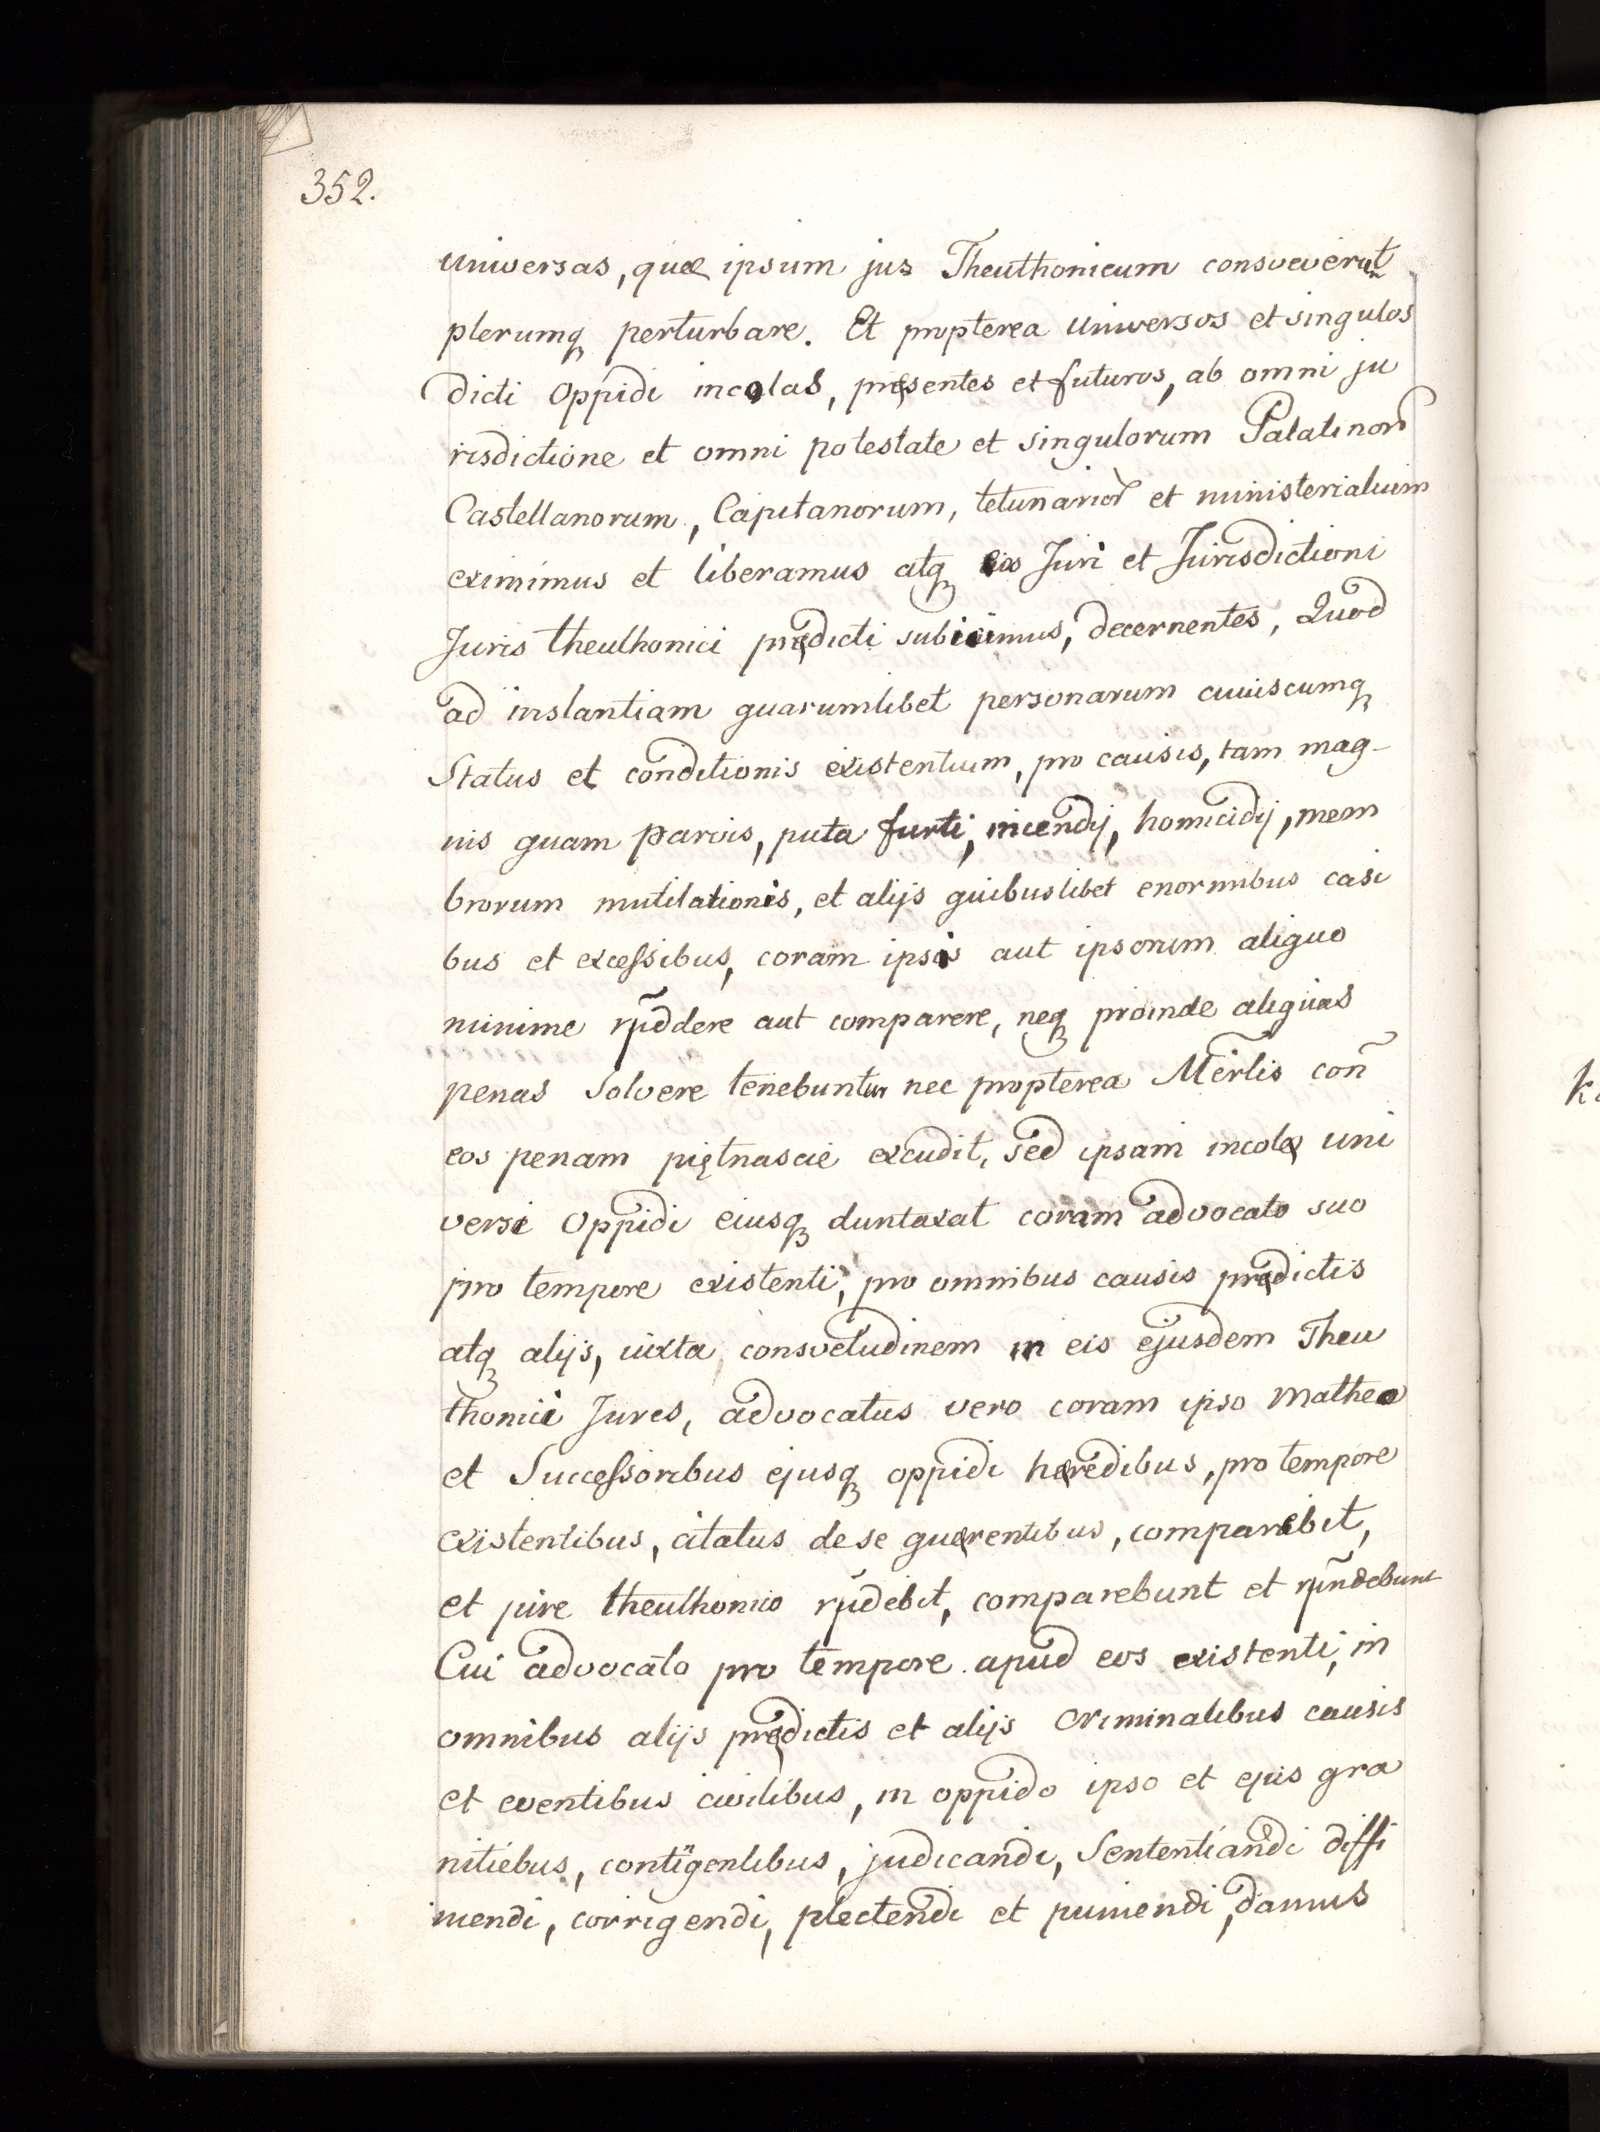 352.
universas, quæ ipsum jus Theuthonicum consveverūt
plerumq perturbare. Et propterea universos et singulos
dicti Oppidi incolas, pręsentes et futuros, ab omni ju
risdictione et omni potestate et singulorum Palatinor
Castellanorum, Capitanorum, tetunarior et ministerialium
eximimus et liberamus atq eos Juri et Jurisdictioni
Juris theuthonici prędicti subicimus, decernentes, Quod
ad instantiam quarumlibet personarum cuiuscumq
Status et conditionis existentium, pro causis, tam mag-
nis quam parvis, puta furti, incendij, homicidij, mem
brorum mutilationis, et alijs quibuslibet enormibus casi
bus et excessibus, coram ipsis aut ipsorum aliquo
minime rn̄ddere aut comparere, neq proinde aliquas
penas solvere tenebuntur nec propterea Mērlis con̄
eos penam piętnascie excudit, sed ipsam incolę uni
versi Oppidi eiusq duntaxat coram advocato suo
pro tempore existenti, pro omnibus causis prędictis
atq alijs, iuxta consvetudinem in eis ejusdem Theu
thonici Jures, advocatus vero coram ipso Matheo
et Successoribus ejusq oppidi hęredibus, pro tempore
existentibus, citatus de se quęrentibus, comparebit,
et jure theuthonico rn̄debit, comparebunt et rn̄ndebunt
Cui advocato pro tempore apud eos existenti, in
omnibus alijs prędictis et alijs criminalibus causis
et eventibus civilibus, in oppido ipso et ejus gra
nitiebus, contigentibus, judicandi, Sententiandi diffi
niendi, corrigendi, plectendi et puniendi, damus